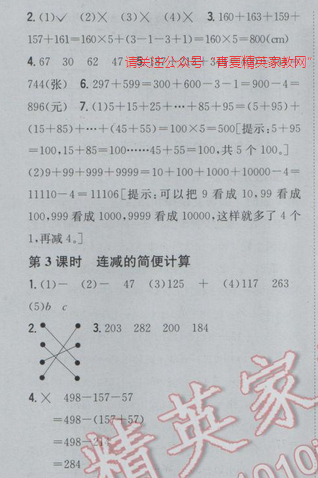 2.(1)✓ (2)✕ (3)✕ (4)✕ 3.160+163+159+
157+161=160×5+(3-1-3+1)=160×5=800(cm)
4.67 30 62 47 5.
请关注公众号“青夏精英家教网”
744(张) 6.297+599=300+600-3-1=900-4=
896(元) 7.(1)5+15+25+···+85+95=(5+95)+
(15+85)+···+(45+55)=100×5=500[提示:5+95
=100,15+85=100······45+55=100,共5个100。]
(2)9+99+999+9999=10+100+1000+10000-4=
11110-4=11106[提示:可以把9看成10,99看成
100,999看成1000,9999看成10000,这样就多了4个
1,再减4。]
第3课时 连减的简便计算
1.(1)- (2)- 47 (3)125 + (4)117 263
(5)b c
2. 3.203 282 200 184
4.✕ 498-157-57
=498-(157+57)
=498-214
=284
精英家
1010j